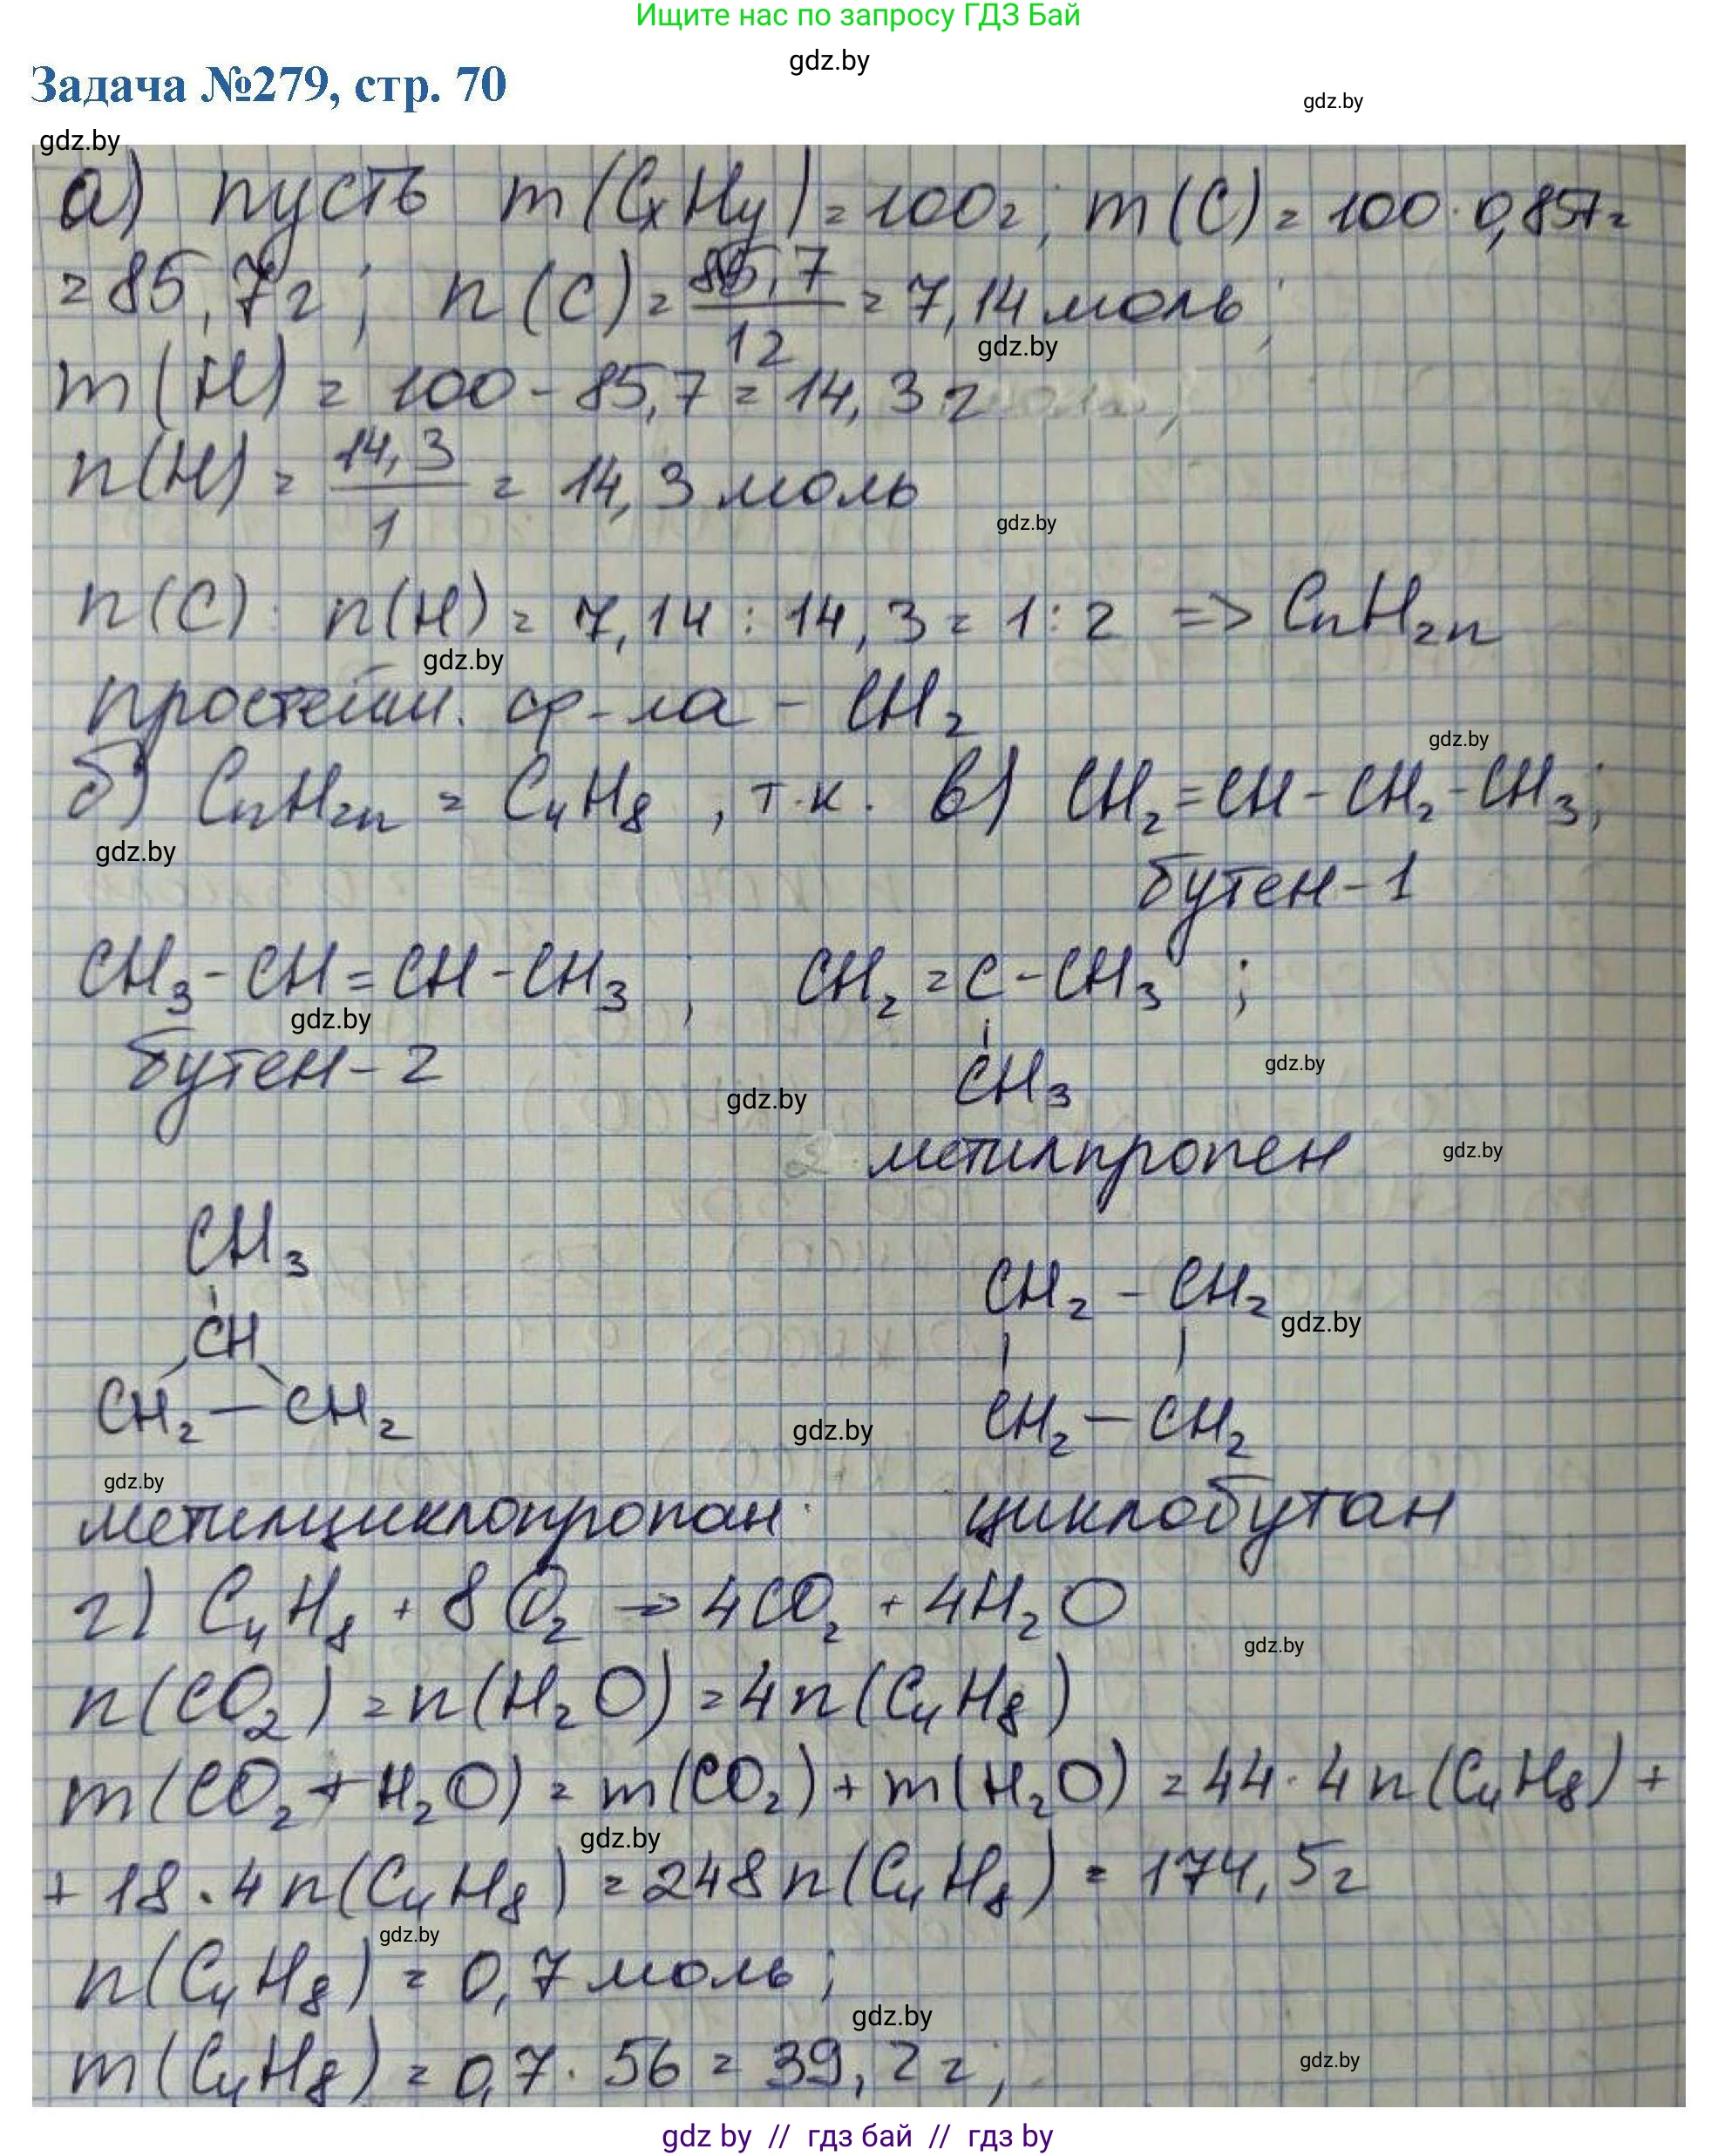 Ищите нас по запросу ГДЗ Бай
gdz.by
Задача №279, стр. 70
gdz.by
gdz.by
а) пусть m(CxHy) = 100г; m(C) = 100·0,857=
= 85,7г; n(C) = 85,7/12 = 7,14 моль;
gdz.by
m(H) = 100 - 85,7 = 14,3 г
n(H) = 14,3/1 = 14,3 моль
gdz.by
n(C) : n(H) = 7,14 : 14,3 = 1:2 => CnH2n
gdz.by
простейш. ф-ла - CH2
gdz.by
б) CnH2n = C4H8, т.к. в) CH2=CH-CH2-CH3;
gdz.by
бутен-1
CH3-CH=CH-CH3, CH2=C-CH3;
gdz.by
CH3
бутен-2
gdz.by
gdz.by
2 метилпропен
gdz.by
CH3
CH2-CH2
gdz.by
CH
CH2-CH2
CH2-CH2
gdz.by
gdz.by
метилциклопропан
циклобутан
г) C4H8 + 8O2 → 4CO2 + 4H2O
gdz.by
n(CO2) = n(H2O) = 4n(C4H8)
m(CO2+H2O) = m(CO2) + m(H2O) = 44·4n(C4H8) +
gdz.by
+ 18·4n(C4H8) = 248n(C4H8) = 174,5г
gdz.by
n(C4H8) = 0,7 моль;
gdz.by
m(C4H8) = 0,7·56 = 39,2 г;
gdz.by
gdz by // гдз бай // гдз by